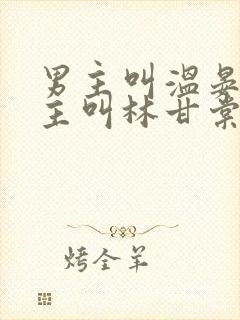 男主叫温晏
主叫林甘棠
烤全羊